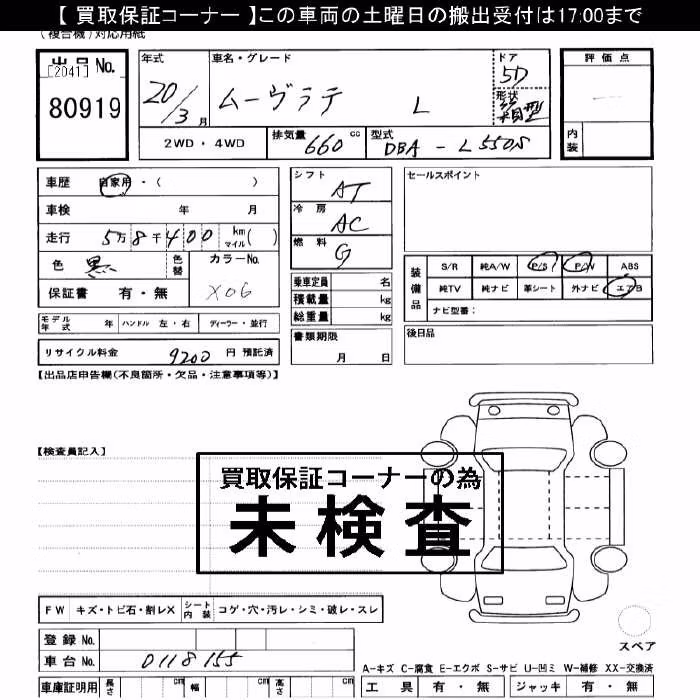 【 買取保証コーナー 】この車両の土曜日の搬出受付は17:00まで
(複合機)対応用紙
出品No.
[2041]
80919
年式 車名・グレード ドア
20/3月 ムーヴラテ L 5D
形状
箱型
2WD・4WD 排気量 660 cc 型式 DBA-L550S
評価点
内装
車歴 自家用・( )
車検 年 月
走行 5万8千400 km マイル( )
色 黒 色替 カラーNo. X06
保証書 有・無
モデル年式 年 ハンドル 左・右 ディーラー・並行
リサイクル料金 9200 円 預託済
シフト AT
冷房 AC
燃料 G
乗車定員 名
積載量 kg
総重量 kg
書類期限
月 日
セールスポイント
装備品
S/R 純A/W P/S P/W ABS
純TV 純ナビ 革シート 外ナビ エアB
ナビ型番:
後日品
【出品店申告欄(不良箇所・欠品・注意事項等)】
【検査員記入】
買取保証コーナーの為
未検査
FW キズ・トビ石・割レX シート内装 コゲ・穴・汚レ・シミ・破レ・スレ
登録No.
車台No. 0118155
車庫証明用 長さ cm 幅 cm 高さ cm
スペア
A-キズ C-腐食 E-エクボ S-サビ U-凹ミ W-補修 XX-交換済
工具 有・無 ジャッキ 有・無